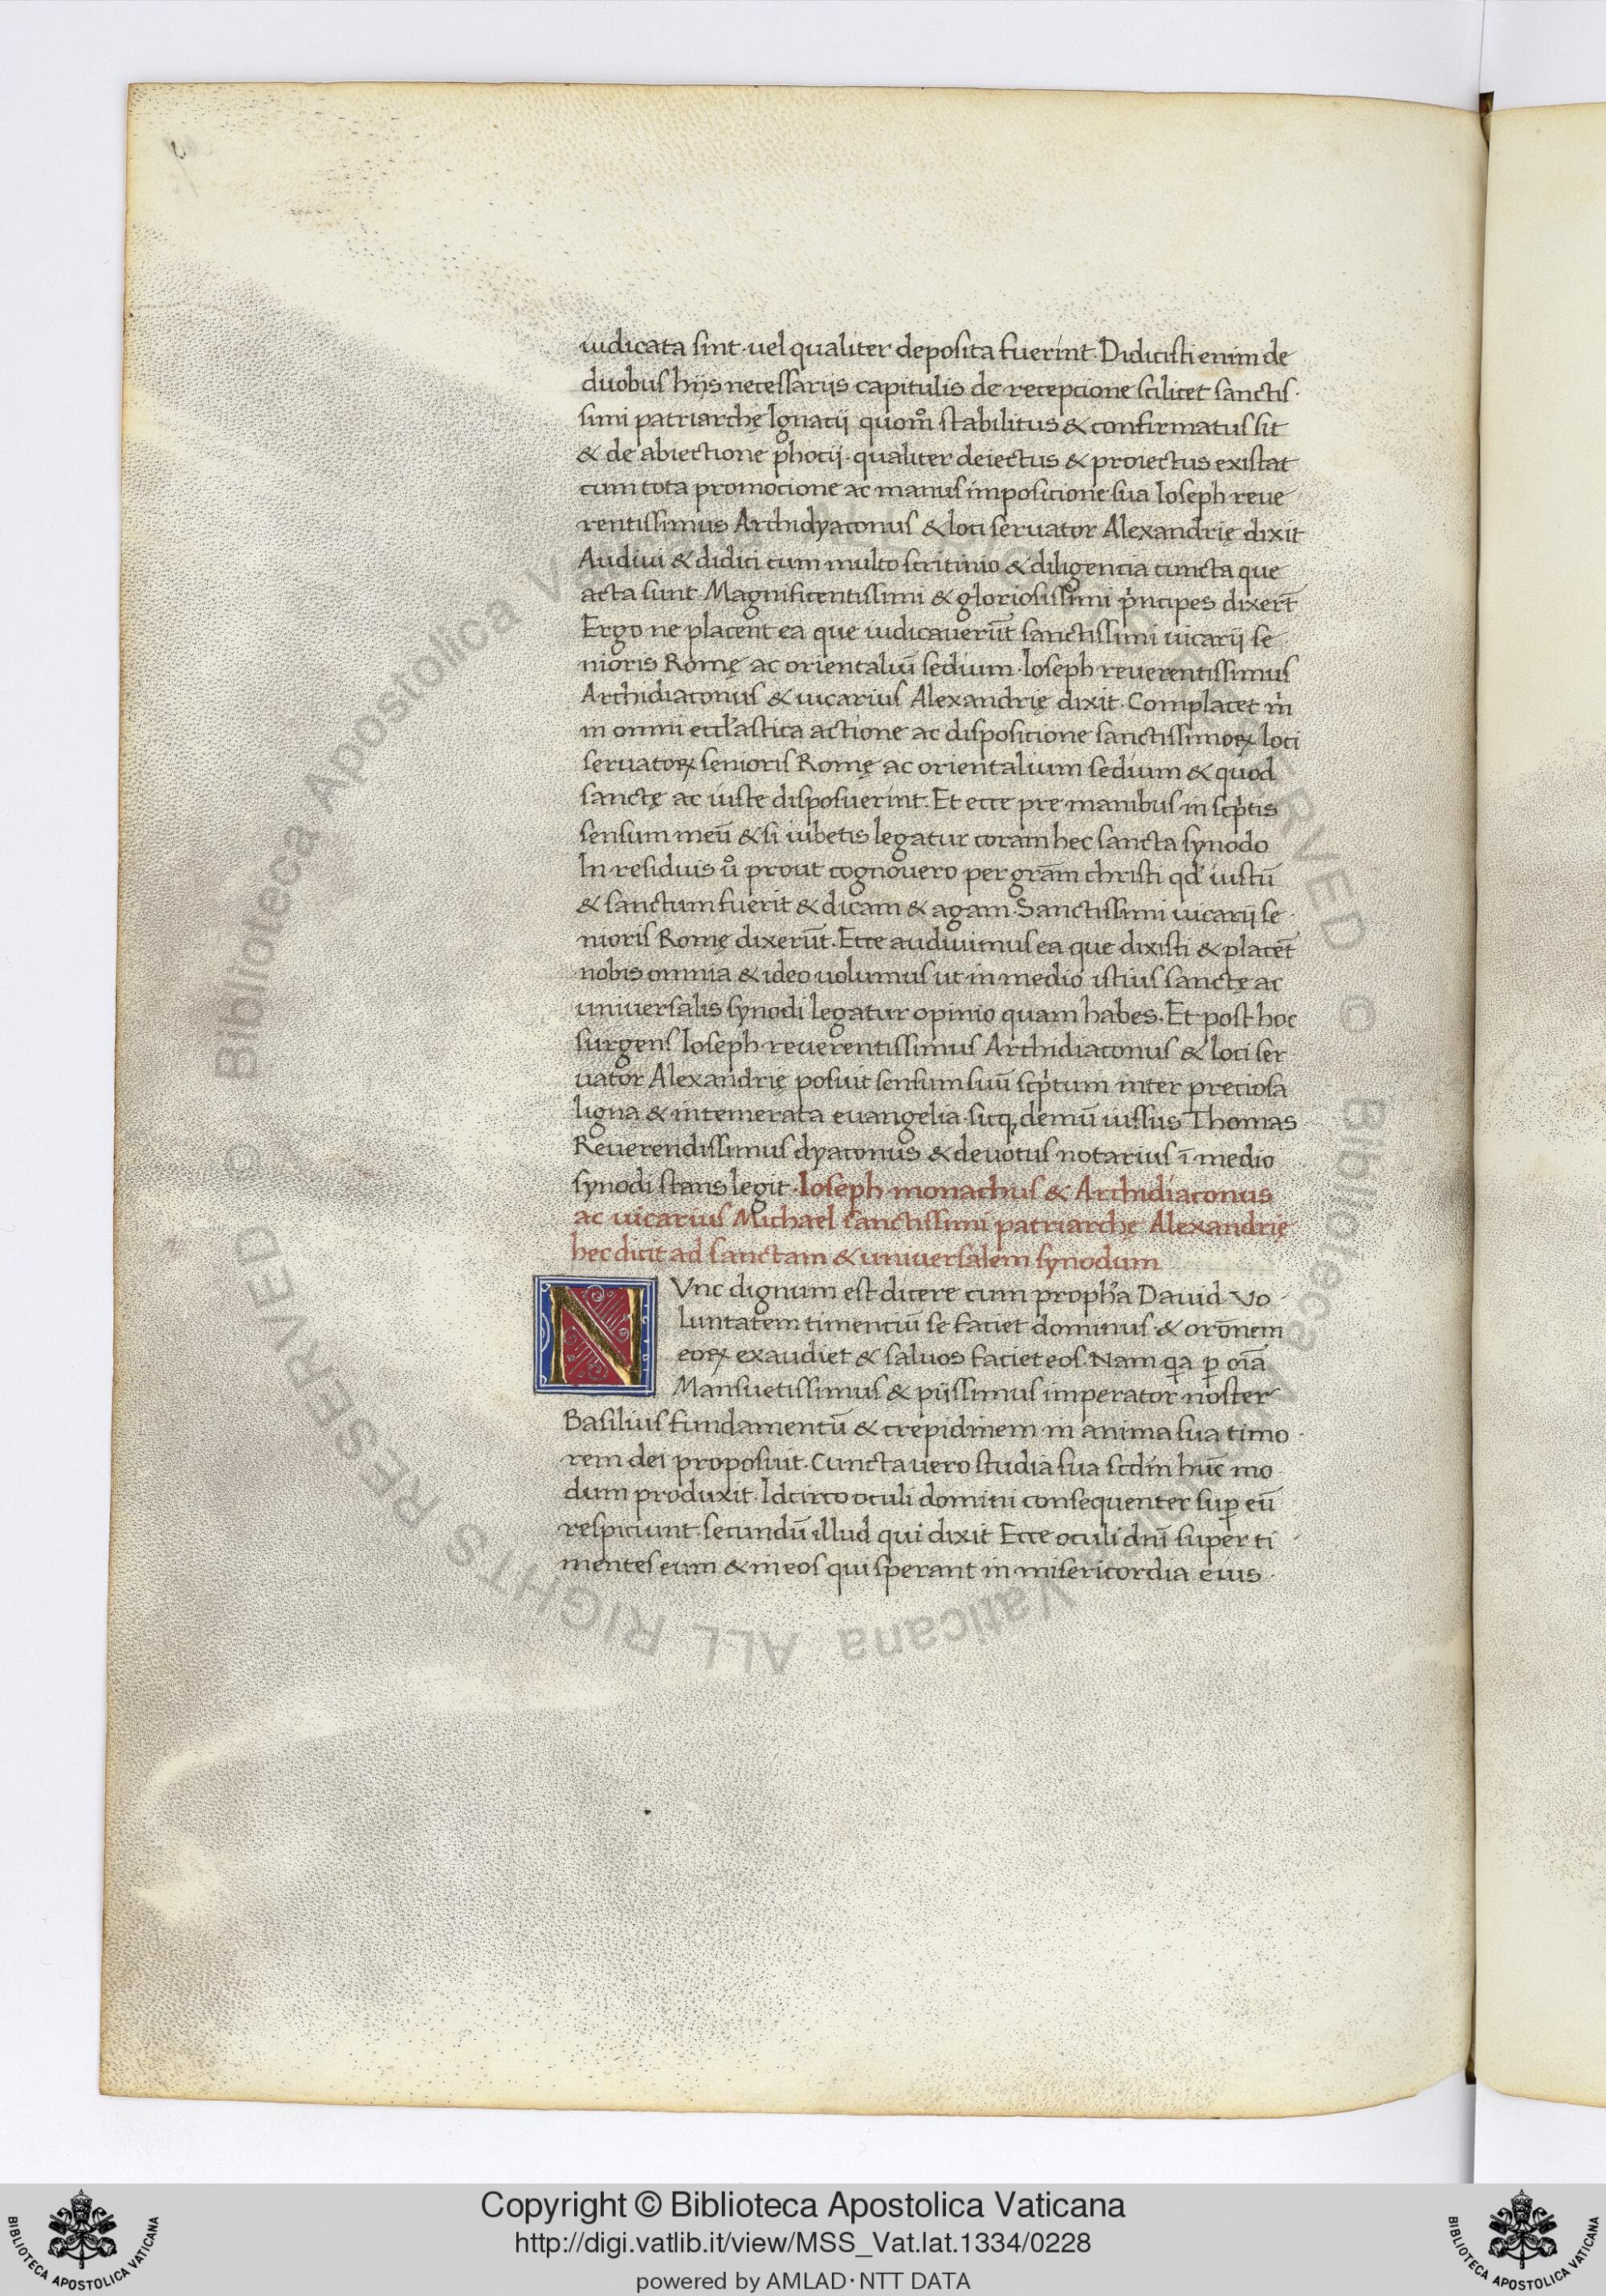 iudicata sint · uel qualiter deposita fuerint. Didicisti enim de
duobus hijs necessarijs capitulis de recepcione scilicet sanctis-
simi patriarchę Ignacij quom̊ stabilitus & confirmatus sit
& de abiectione photij · qualiter deiectus & proiectus existat
cum tota promocione ac manus imposicione sua Ioseph reue
rentissimus Archidyaconus & loci seruator Alexandrię dixit
Audiui & didici cum multo scritinio & diligencia cuncta que
acta sunt. Magnificentissimi & gloriosissimi p̍ncipes dixer̄t
Ergo ne placent ea que iudicauerūt sanctissimi uicarij se
nioris Romę ac orientaliū sedium · Ioseph reuerentissimus
Archidiaconus & uicarius Alexandrię dixit. Complacet m̍
in omni eccl̍astica actione ac disposicione sanctissimoꝝ loci
seruatoꝝ senioris Romę ac orientalium sedium & quod
sanctę ac iuste disposuerint. Et ecce pre manibus in scp̍tis
sensum meū & si iubetis legatur coram hec sancta synodo
In residuis ů prout cognouero per grām christi qd' iustū
& sanctum fuerit & dicam & agam. Sanctissimi uicarij se-
nioris Romę dixerūt. Ecce audiuimus ea que dixisti & placēt
nobis omnia & ideo uolumus ut in medio istius sanctę ac
uniuersalis synodi legatur opinio quam habes. Et post hoc
surgens Ioseph reuerentissimus Archidiaconus & loci ser
uator Alexandrię posuit sensum suū scp̍tum inter preciosa
ligna & intemerata euangelia · sicq; demū iussus Thomas
Reuerendissimus dyaconus & deuotus notarius ī medio
synodi stans legit · Ioseph monachus & Archidiaconus
ac uicarius Michael sanctissimi patriarchę Alexandrię
hec dicit ad sanctam & uniuersalem synodum
NVnc dignum est dicere cum proph̍a Dauid · Vo-
luntatem timenciū se faciet dominus & orōnem
eoꝝ exaudiet & saluos faciet eos. Nam qa ꝑ oīa
Mansuetissimus & pijssimus imperator noster
Basilius fundamentū & crepidinem in anima sua timo-
rem dei proposuit. Cuncta uero studia sua scdm hūc mo
dum produxit. Idcirco oculi domini consequenter suꝑ eū
respiciunt · secundū illud qui dixit Ecce oculi dnī super ti-
mentes eum & in eos qui sperant in misericordia eius ·
© Biblioteca Apostolica Vaticana ALL RIGHTS RESERVED
Copyright © Biblioteca Apostolica Vaticana
http://digi.vatlib.it/view/MSS_Vat.lat.1334/0228
powered by AMLAD · NTT DATA
BIBLIOTECA APOSTOLICA VATICANA
BIBLIOTECA APOSTOLICA VATICANA